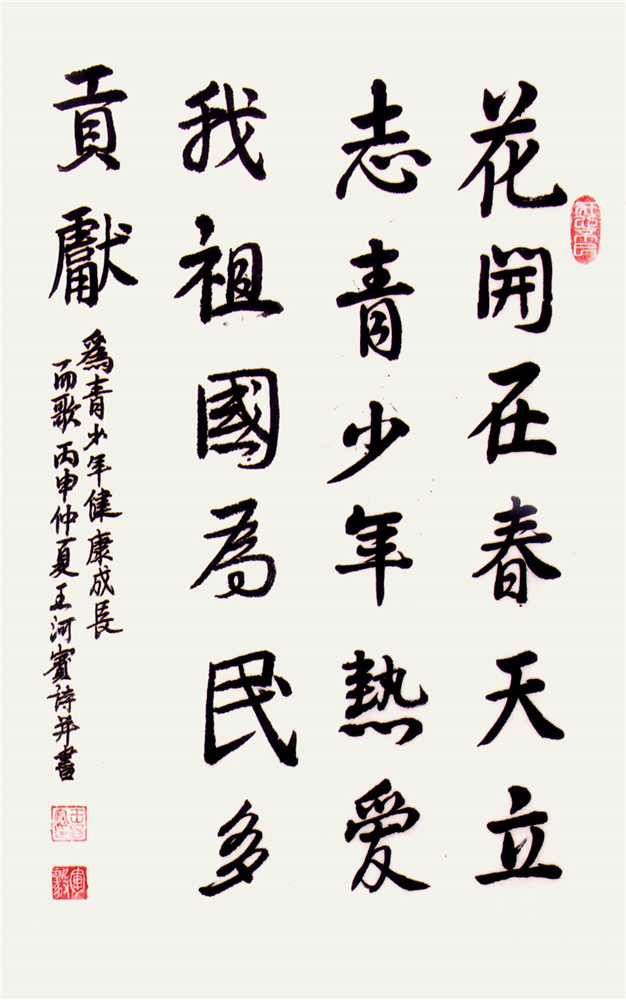 花開在春天立
志青少年熱爱
我祖國為民多
貢獻
爲青少年健康成長
而歌丙申仲夏王河賓詩并書